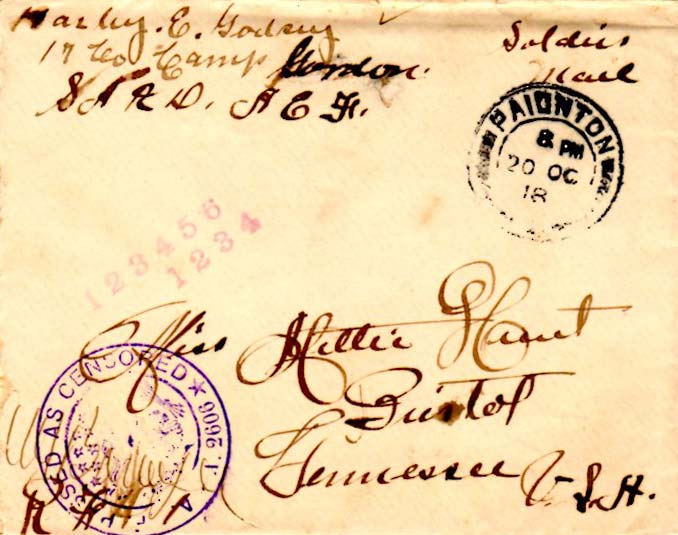 Harley. E. Godsey
17 Co Camp Gordon.
S A R D. A E F.
Soldiers
Mail
PAIGNTON
8 PM
20 OC
18
123456
1234
Miss Hettie Hunt
Bristol
Tennessee U.S.A.
PASSED AS CENSORED ★ A. 2606